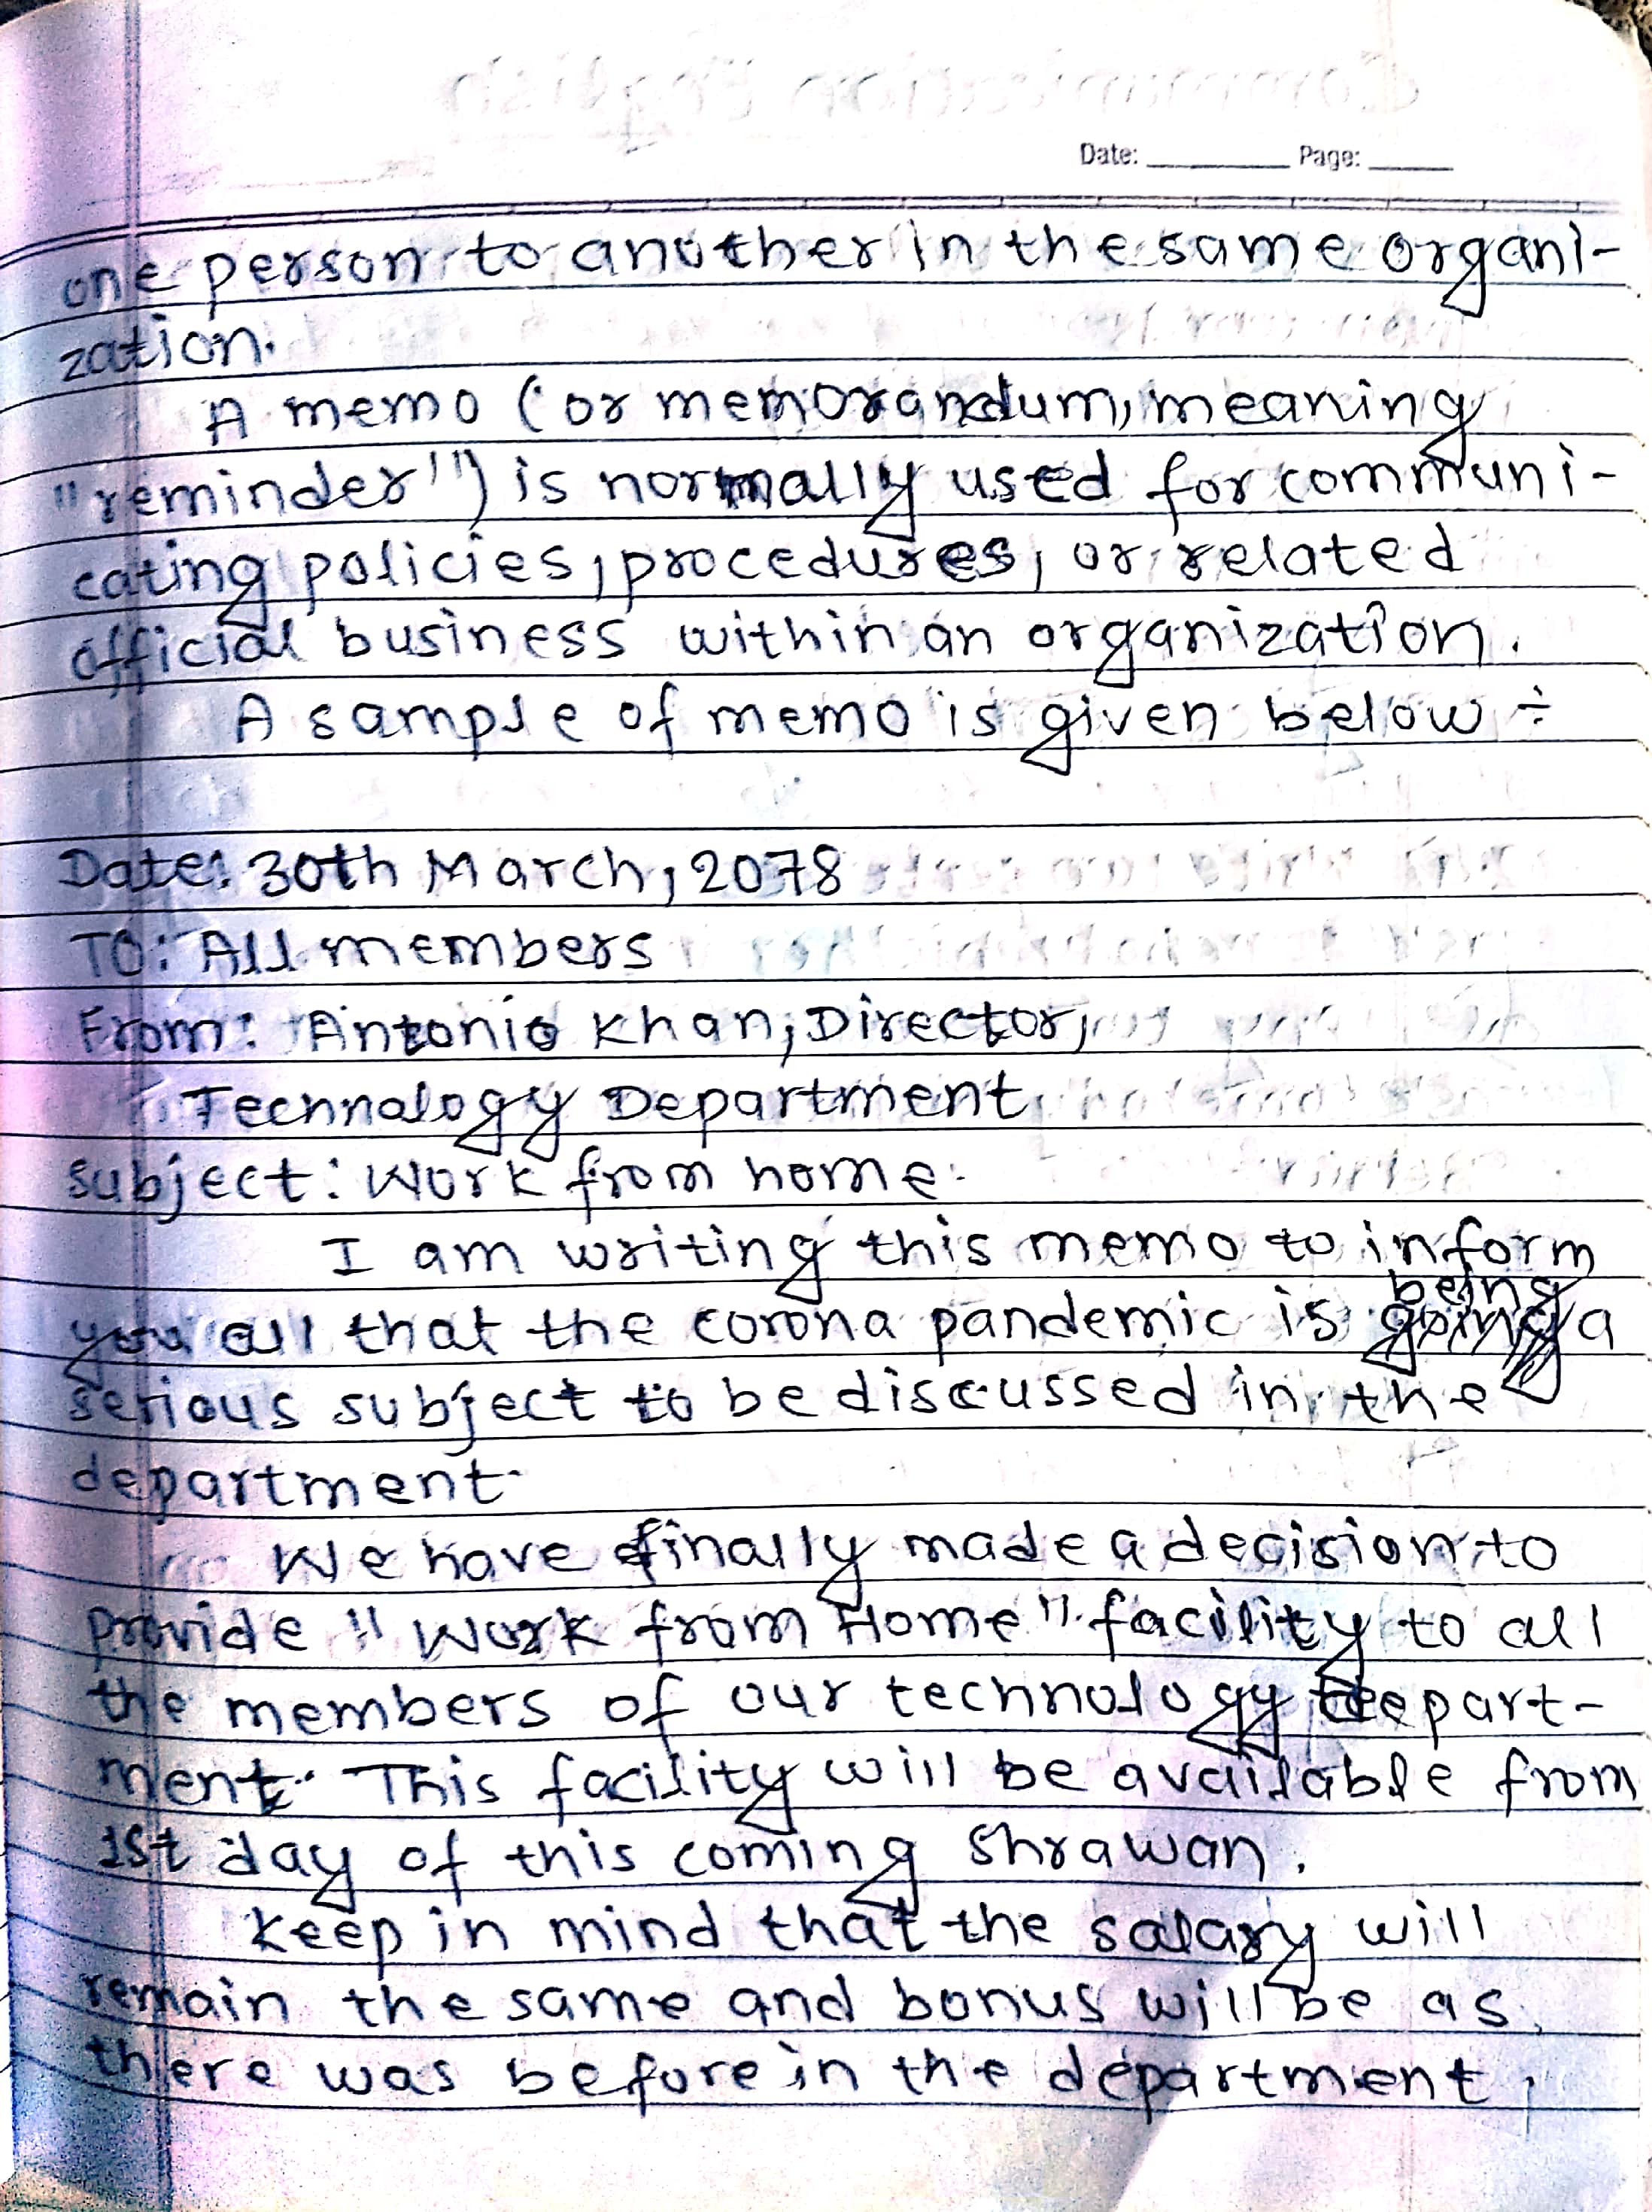 Date: ________ Page: ____
one person to another in the same organi-
zation.
A memo (or memorandum, meaning
"reminder") is normally used for communi-
cating policies, procedures, or related
official business within an organization.
A sample of memo is given below ÷
Date: 30th March, 2078
TO: All members
From: Antonio Khan, Director,
Technology Department
Subject: Work from home.
I am writing this memo to inform
being
you all that the corona pandemic is a
serious subject to be discussed in the
department.
We have finally made a decision to
provide "Work from Home" facility to all
the members of our technology depart-
ment. This facility will be available from
1st day of this coming Shrawan.
Keep in mind that the salary will
remain the same and bonus will be as
there was before in the department.